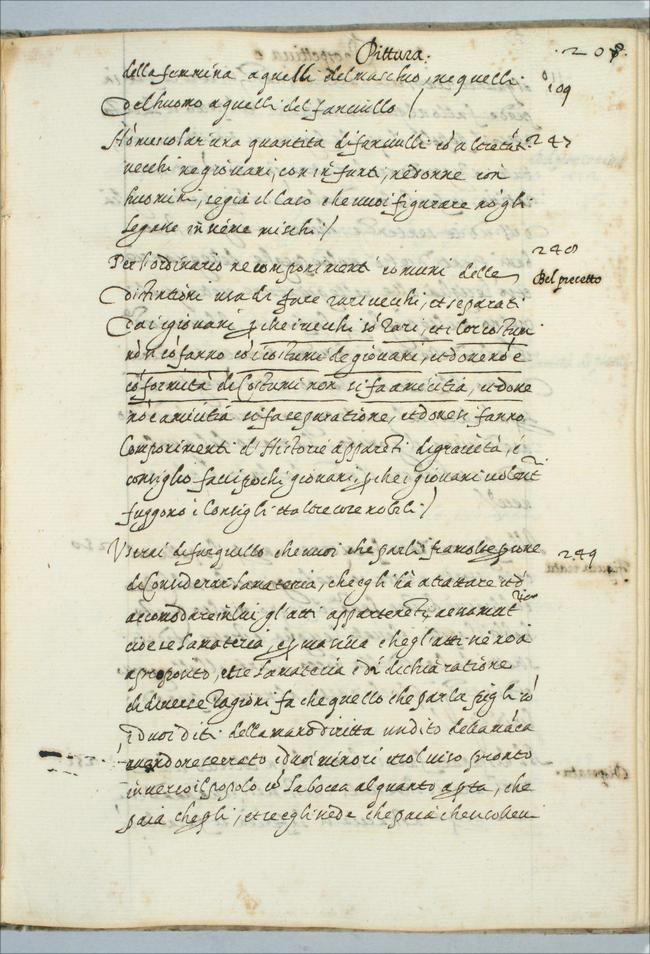 Pittura.
208.
della femmina a quelli del maschio, ne quelli
109
del huomo a quelli del fanciullo /
Nó mescolar una quantita di fanciulli có altretáti
247
vecchi ne giovani, con infanti, ne donne con
huomini, se gia il caso che vuoi figurare nó gli
legane insieme mischi /
248
Bel precetto
Per l'ordinario ne componimenti comuni delle
distintioni usa di fare rari vecchi, et separati
dai giovani, che i vecchi só rari, et i lor costumi
nó si cófanno có i costumi de giovani, et dove nó é
cóformità de costumi non si fa amicitia, et dove
nó é amicitia si fa separatione, et dove si fanno
componimenti d'Historie apparéti di gravità, é
consiglio facci pochi giovani, che i giovani volent.ri
fuggono i consigli et altre cose nobili /
Userai di far quello che vuoi che parli fra molte persone
249
di considerar la materia, che egli há a tattare et dó
accomodare in lui gl'atti appartenéti a essa mat.ria
cioe se la materia é persuasiva che gl'atti ne sieno a
proposito, et se la materia é di dichiaratione
di diverse ragioni fa che quello che parla pigli có
i duoi diti della mano diritta un dito della máca
havendone serrato i duoi minori et col viso pronto
inverso il popolo có la bocca alquanto apta, che
paia che parli, et se egli siede che paia che si sollevi